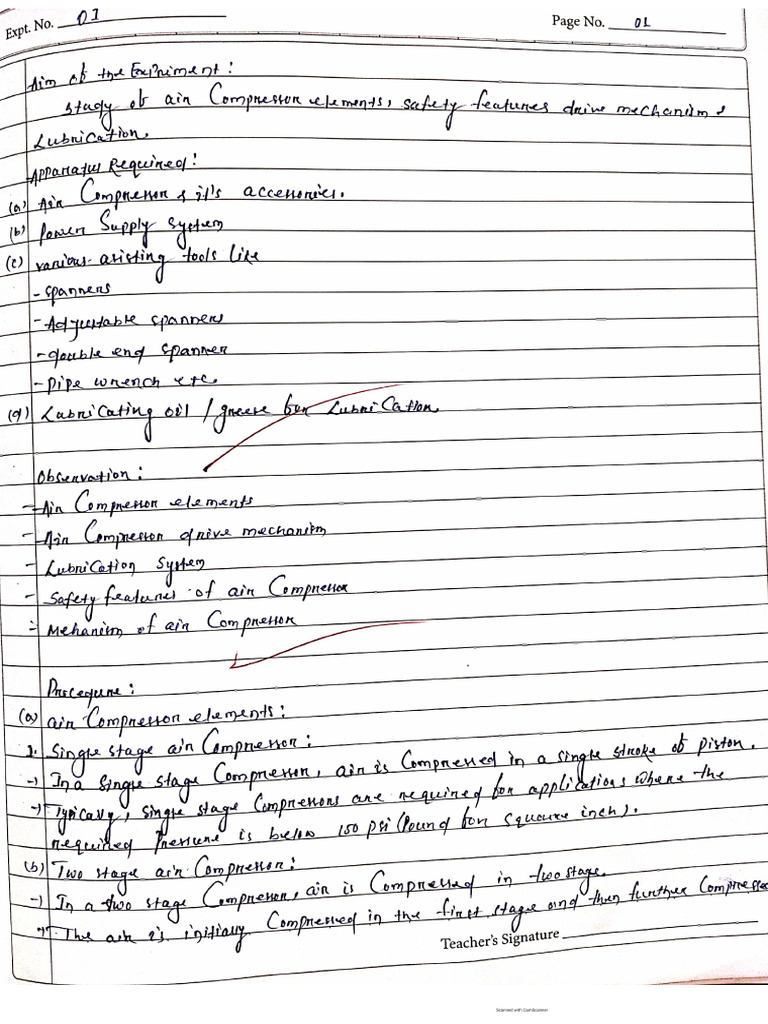 Expt. No. 01
Page No. 01
Aim of the Expiriment :
Study of air Compressor elements, safety features drive mechanism &
Lubrication.
Apparatus Required :
(a) Air Compressor & it's accessories.
(b) Power Supply System
(c) various asisting tools like
- spanners
- Adjustable spanners
- double end spanner
- pipe wrench etc.
(d) Lubricating oil / greese for Lubrication.
Observation :
- Air Compressor elements
- Air Compressor drive mechanism
- Lubrication System
- Safety features of air Compressor
- Mehanism of air Compressor
Procedure :
(a) air Compressor elements :
1. Single stage air Compressor :
→ In a single stage Compressor, air is Compressed in a single stroke of piston.
→ Typically, single stage Compressors are required for applications where the
required Pressure is below 150 psi (Pound for square inch).
(b) Two stage air Compressor :
→ In a two stage Compressor, air is Compressed in two stage.
→ The air is initially Compressed in the first stage and then further Compressed
Teacher's Signature
Scanned with CamScanner